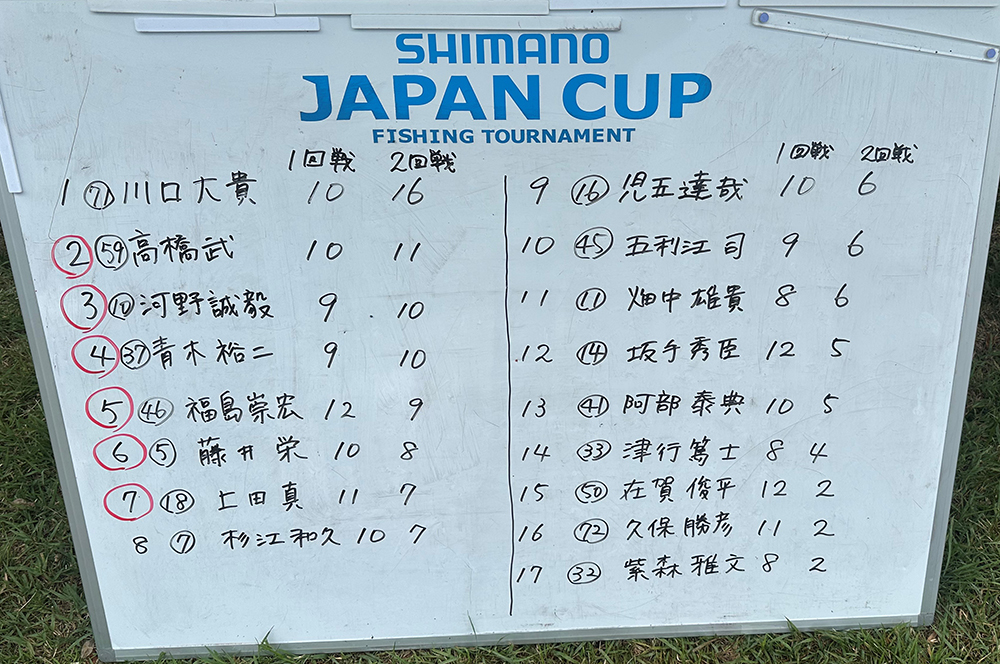 SHIMANO
JAPAN CUP
FISHING TOURNAMENT
1回戦 2回戦
1 ⑦ 川口大貴 10 16
② 59 高橋武 10 11
③ ⑩ 河野誠毅 9 10
④ ㊲ 青木裕二 9 10
⑤ ㊻ 福島崇宏 12 9
⑥ ⑤ 藤井栄 10 8
⑦ ⑱ 上田真 11 7
8 ⑦ 杉江和久 10 7
1回戦 2回戦
9 ⑯ 児玉達哉 10 6
10 ㊺ 五利江司 9 6
11 ⑪ 畑中雄貴 8 6
12 ⑭ 坂本秀臣 12 5
13 ㊶ 阿部泰典 10 5
14 ㉝ 津行篤士 8 4
15 ㊿ 在賀俊平 12 2
16 72 久保勝彦 11 2
17 ㉜ 紫森雅文 8 2